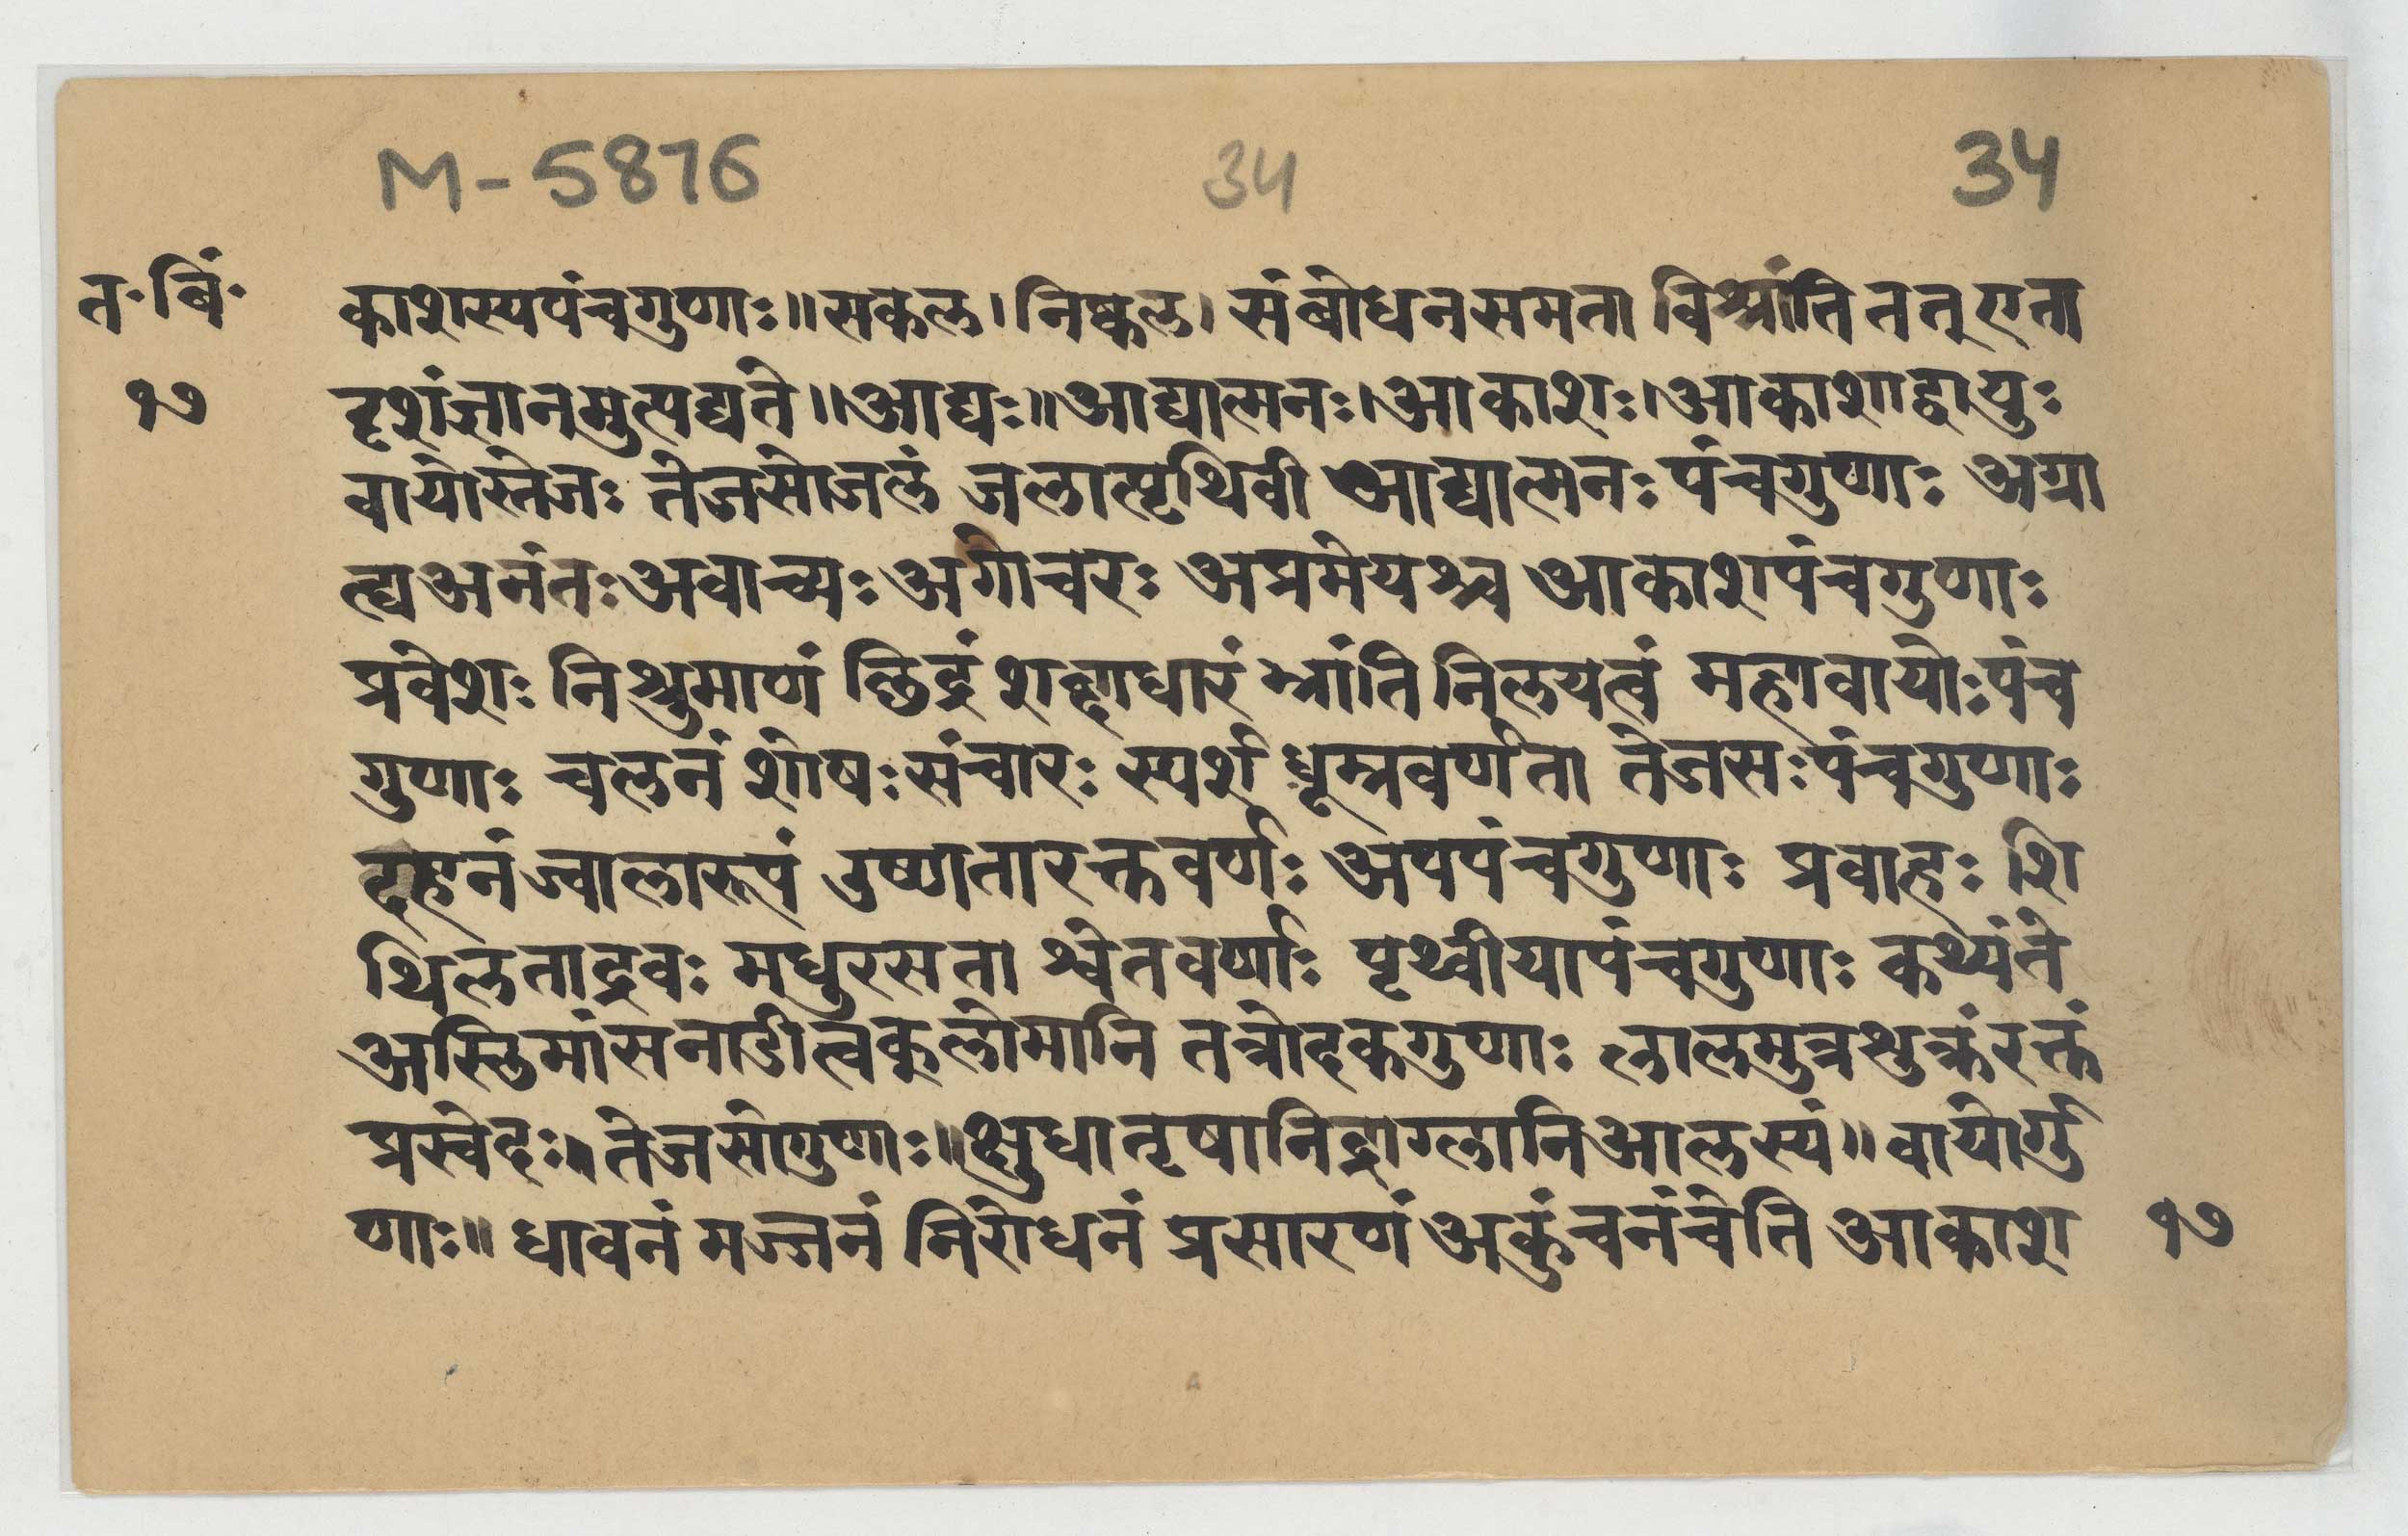 M-5876 34 34
त॰ बिं॰ काशस्यपंचगुणाः॥सकल।निष्कल।संबोधनसमता विश्रांति ततएता
१७ दृशंज्ञानमुत्पद्यते॥आद्यः॥आद्यात्मनः।आकाशः।आकाशाद्वायुः
वायोस्तेजः तेजसोजलं जलात्पृथिवी आद्यात्मनः पंचगुणाः अग्रा
ह्य अनंतः अवाच्यः अगोचरः अप्रमेयश्च आकाशपंचगुणाः
प्रवेशः छिद्रं महावायोःपंच
गुणाः चलनं शोषः संचारः स्पर्श धूम्रवर्णता तेजसःपंचगुणाः
दहनं ज्वालारूपं उष्णतारक्तवर्णः अपपंचगुणाः प्रवाहः शि
थिलताद्रवः मधुरसता श्वेतवर्णाः पृथ्वीयापंचगुणाः कथ्यंते
अस्तिमांसनाडीत्वकुलोमानि तत्रोदकगुणाः लालमुत्रशुक्रंरक्तं
प्रस्वेदः।तेजसोगुणाः॥क्षुधातृषानिद्राग्लानिआलस्यं॥वायोर्गु
णाः॥ धावनं मज्जनं निरोधनं प्रसारणं अकुंचनंचेति आकाश १७